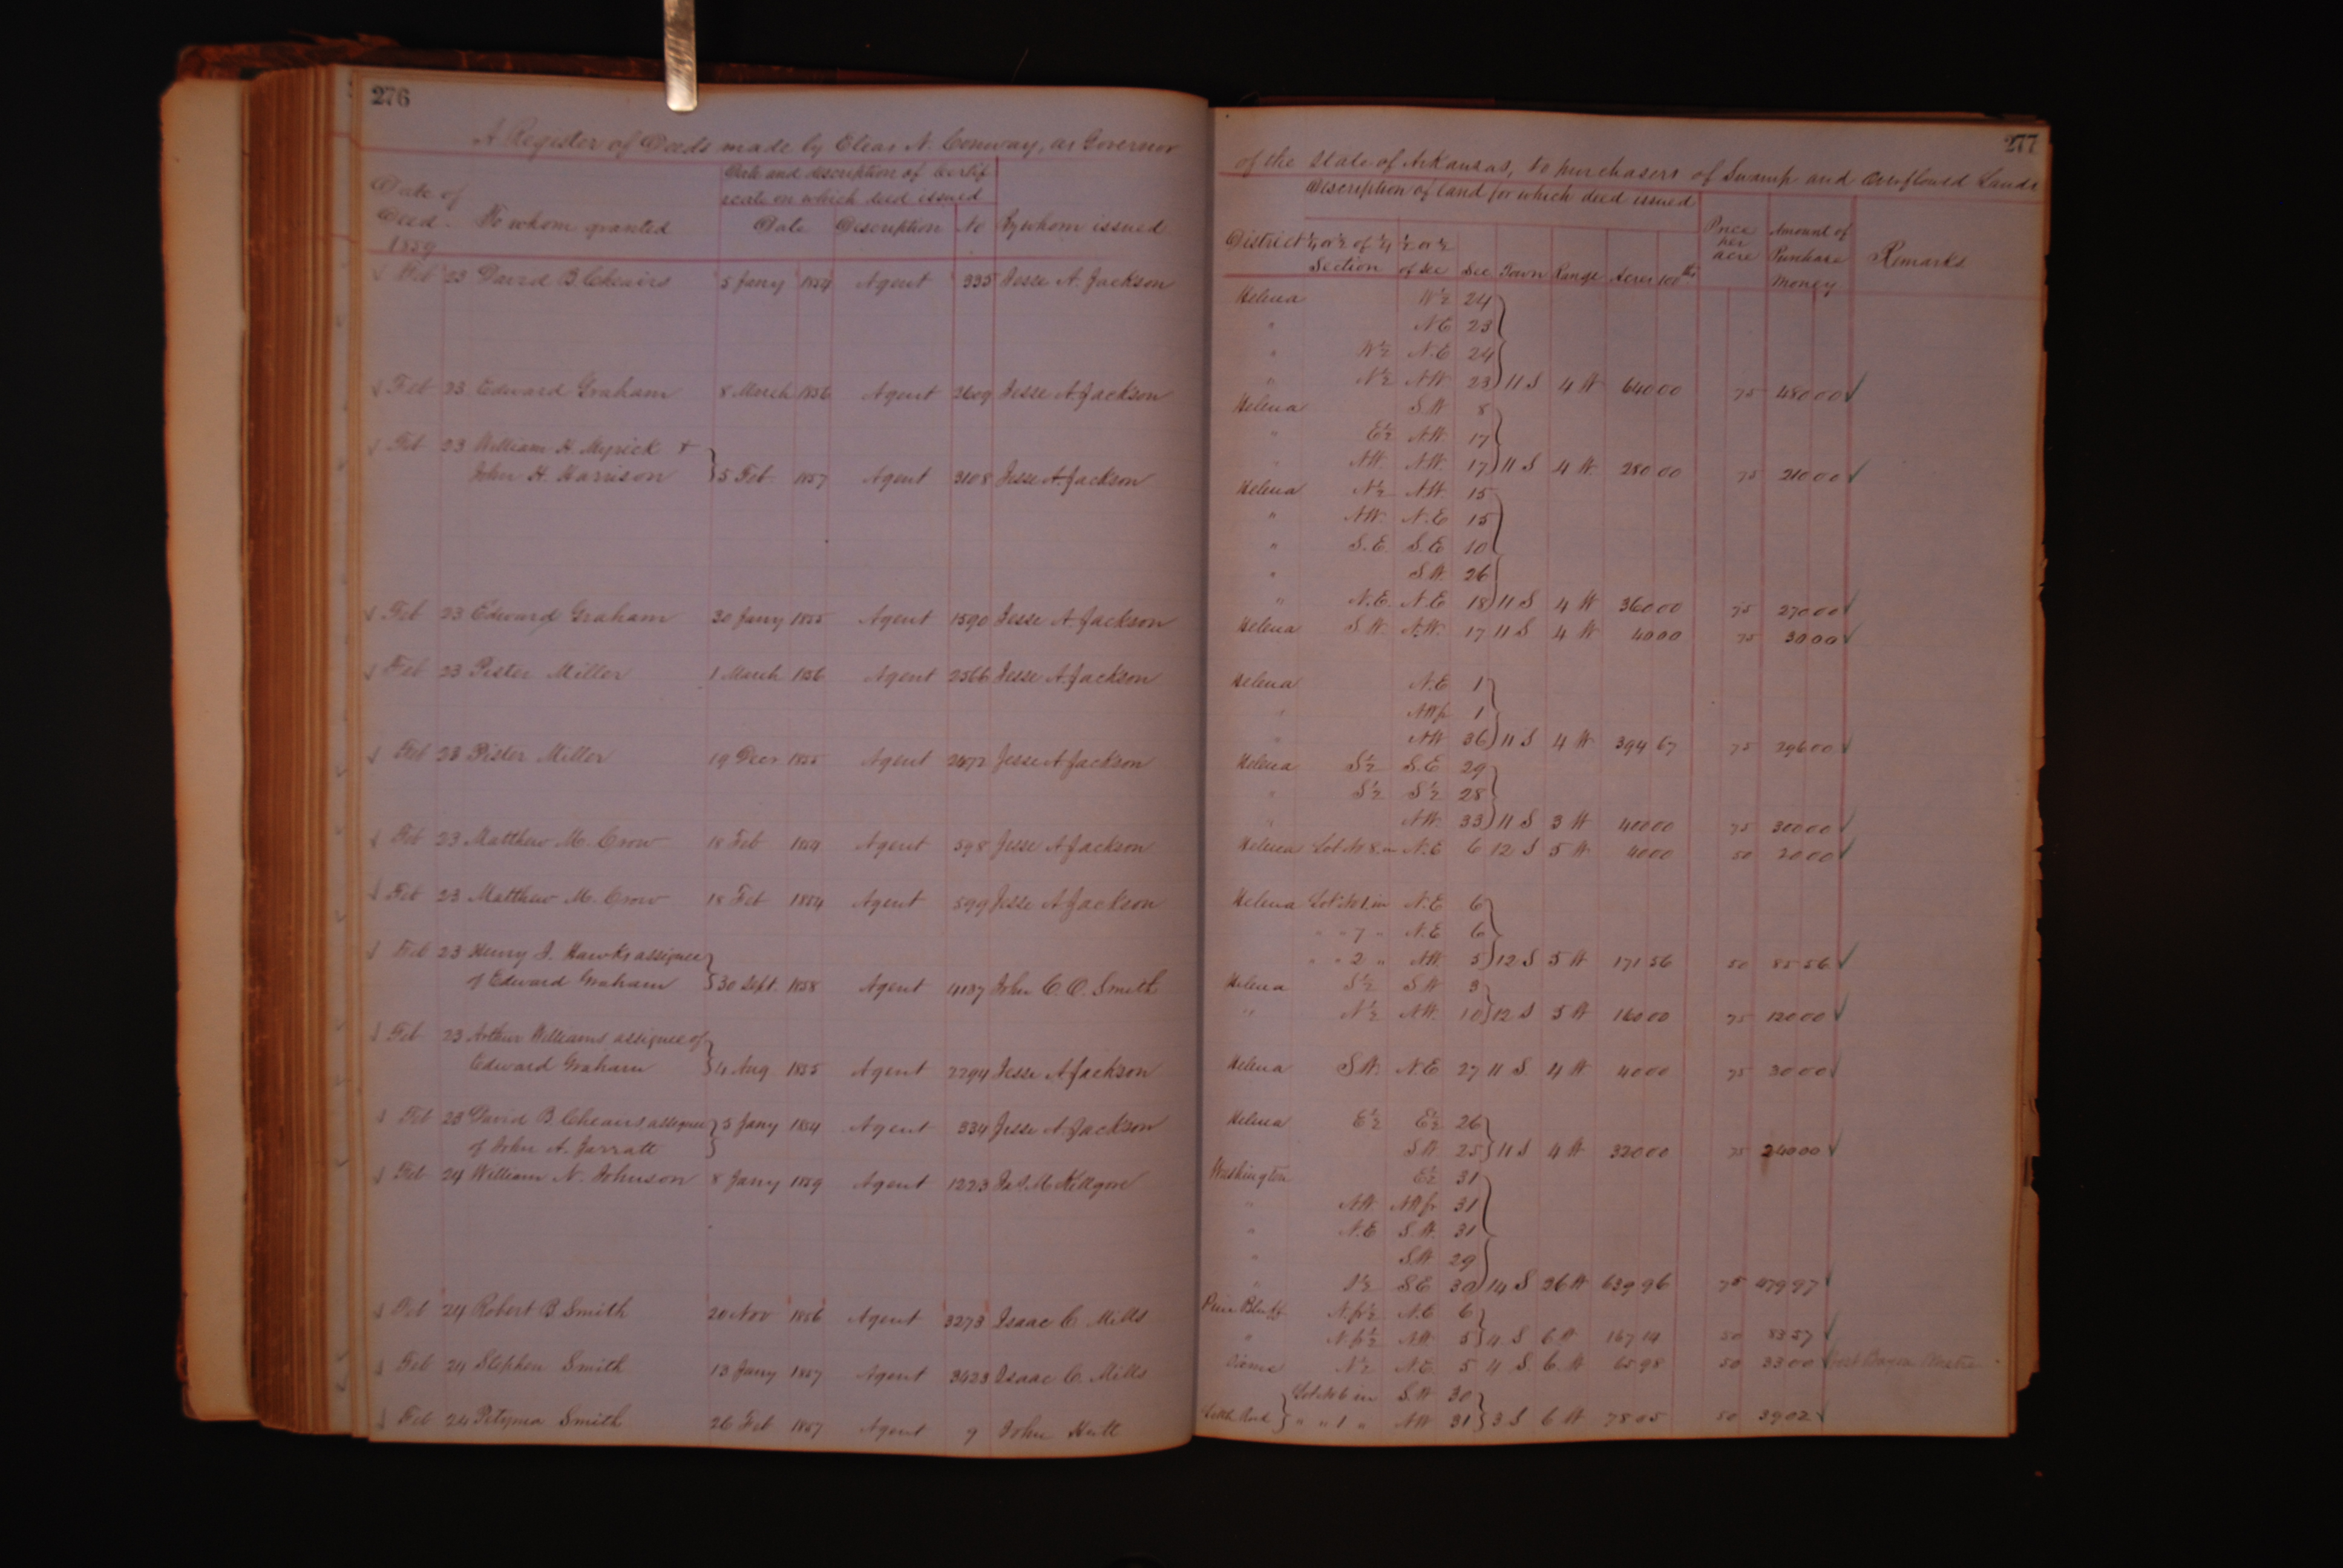 276
A Register of Deeds made by Elias N. Conway, as Governor
Date of Deed. To whom granted
Date and description of Certificate on which deed issued
Date Description No By whom issued
1859
Feb 23 David B. Cheairs 5 Jany 1854 Agent 335 Jesse A. Jackson
Feb 23 Edward Graham 8 March 1856 Agent 2609 Jesse A. Jackson
Feb 23 William H. Myrick +
John H. Harrison 5 Feb 1857 Agent 3108 Jesse A. Jackson
Feb 23 Edward Graham 30 Jany 1855 Agent 1590 Jesse A. Jackson
Feb 23 Pister Miller 1 March 1856 Agent 2566 Jesse A Jackson
Feb 23 Pister Miller 19 Decr 1855 Agent 2472 Jesse A Jackson
Feb 23 Matthew M. Crow 18 Feb 1854 Agent 598 Jesse A Jackson
Feb 23 Matthew M. Crow 18 Feb 1854 Agent 599 Jesse A Jackson
Feb 23 Henry J. Hawks assignee
of Edward Graham 30 Sept. 1858 Agent 4137 John C. O. Smith
Feb 23 Arthur Williams assignee of
Edward Graham 4 Aug 1855 Agent 2294 Jesse A Jackson
Feb 23 David B. Cheairs assignee 5 Jany 1854 Agent 334 Jesse A. Jackson
of John A. Jarratt
Feb 24 William N. Johnson 8 Jany 1859 Agent 1223 Jas. M Killgore
Feb 24 Robert B. Smith 20 Nov 1856 Agent 3273 Isaac C. Mills
Feb 24 Stephen Smith 13 Jany 1857 Agent 3423 Isaac C. Mills
Feb 24 Smith 26 Feb 1857 Agent 9 John Hutt
277
of the State of Arkansas, to purchasers of Swamp and Overflowed Lands
Description of land for which deed issued
District ¼ or ½ of ¼ Section ¼ or ½ of Sec Sec Town Range Acres 100ths Price per acre Amount of Purchase Money Remarks
Helena W½ 24
" N.E 23
" W½ N.E 24
" N½ N.W 23 11 S 4 W 640 00 75 480 00
Helena S.W 8
" E½ N.W. 17
" N.W. N.W. 17 11 S 4 W. 280 00 75 210 00
Helena N½ N.W. 15
" N.W. N.E 15
" S.E. S.E 10
" S.W. 26
" N.E. N.E 18 11 S 4 W 360 00 75 270 00
Helena S.W. N.W. 17 11 S 4 W 40 00 75 30 00
Helena N.E 1
" N.W fr 1
" N.W 36 11 S 4 W 394 67 75 296 00
Helena S½ S.E 29
" S½ S½ 28
" N.W. 33 11 S 3 W 400 00 75 300 00
Helena Lot No 8 in N.E 6 12 S 5 W 40 00 50 20 00
Helena Lot No 1 in N.E 6
" " 7 " N.E 6
" " 2 " N.W. 5 12 S 5 W 171 56 50 85 56
Helena S½ S.W 3
" N½ N.W. 10 12 S 5 W 160 00 75 120 00
Helena S.W. N.E 27 11 S. 4 W 40 00 75 30 00
Helena E½ E½ 26
S.W 25 11 S 4 W 320 00 75 240 00
Washington E½ 31
" N.W. N.W fr 31
" N.E S.W. 31
" S.W 29
" S½ S.E 30 14 S 26 W 639 96 75 479 97
Pine Bluff N. fr ½ N.E 6
" N. fr ½ N.W 5 4 S 6 W 167 14 50 83 57
N½ N.E. 5 4 S 6 W 65 98 50 33 00
Little Rock Lot No 6 in S.W 30
" " 1 " N.W 31 3 S 6 W 78 05 50 39 02